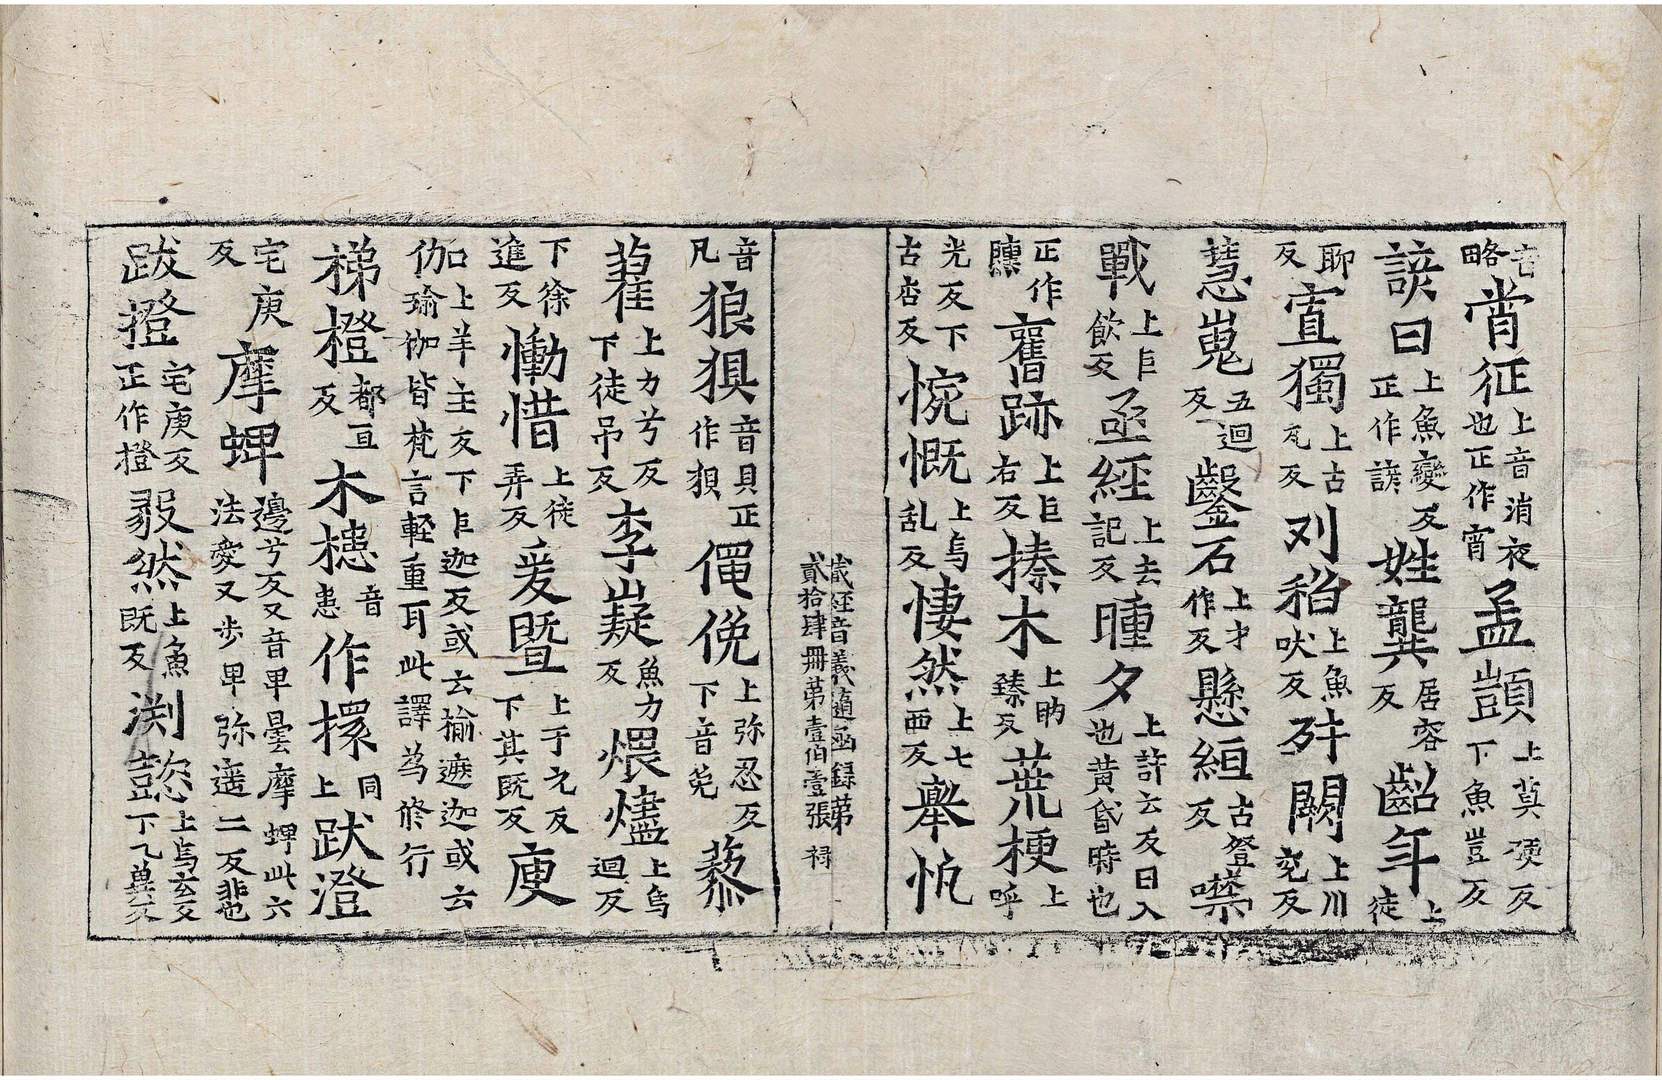 略宵征上音消夜也正作宵孟顗上莫硬反下魚豈反
諺曰上魚變反正作諺姓龔居容反齠年上徒
聊反寘獨上古瓦反刈稻上魚吠反矸闕上川兖反
慧嵬五迴反鑿石上才作反懸絙古登反噤
戰上巨飲反亟經上去記反曛夕上許云反日入也黄昏時也
正作臐舊跡上巨右反搸木上助臻反荒梗上呼
光反下古杏反惋慨上烏乱反悽然上七西反舉忛
藏經音義随函録第貳拾肆冊第壹伯壹張禄
音凡狼狽音貝正作狽僶俛上弥忍反下音免藜
藋上力兮反下徒吊反李嶷魚力反煨燼上烏迴反
下徐進反慟惜上徒弄反爰暨上于元反下其既反庾
伽上羊主反下巨迦反或云揄遮迦或云瑜伽皆梵言輕重耳此譯爲修行
梯橙都亘反木槵音患作摞同上跋澄
宅庚反摩蜱邊兮反又音卑曇摩蜱此六法愛又步卑弥遥二反非也
跋撜宅庚反正作橙毅然上魚既反渕懿上烏玄反下乙冀反